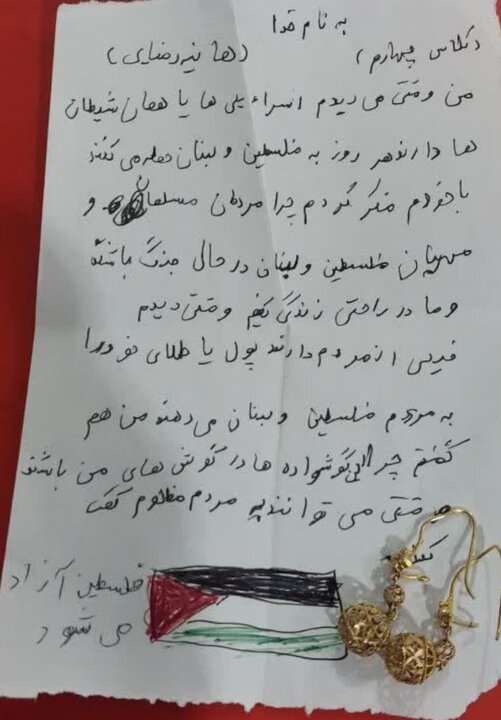 به نام خدا
(کلاس چهارم) (هانیه رضایی)
من وقتی می دیدم اسرائیلی ها یا همان شیطان
ها دارند هر روز به فلسطین و لبنان حمله می کنند
با خودم فکر کردم چرا مردمان مسلمان و
مهربان فلسطین و لبنان در حال جنگ باشند
و ما در راحتی زندگی کنیم وقتی دیدم
خیلی از مردم دارند پول یا طلای خود را
به مردم فلسطین و لبنان می دهند من هم
گفتم چرا این گوشواره ها در گوش های من باشند
وقتی می توانند به مردم مظلوم کمک
کنند
فلسطین آزاد
می شود